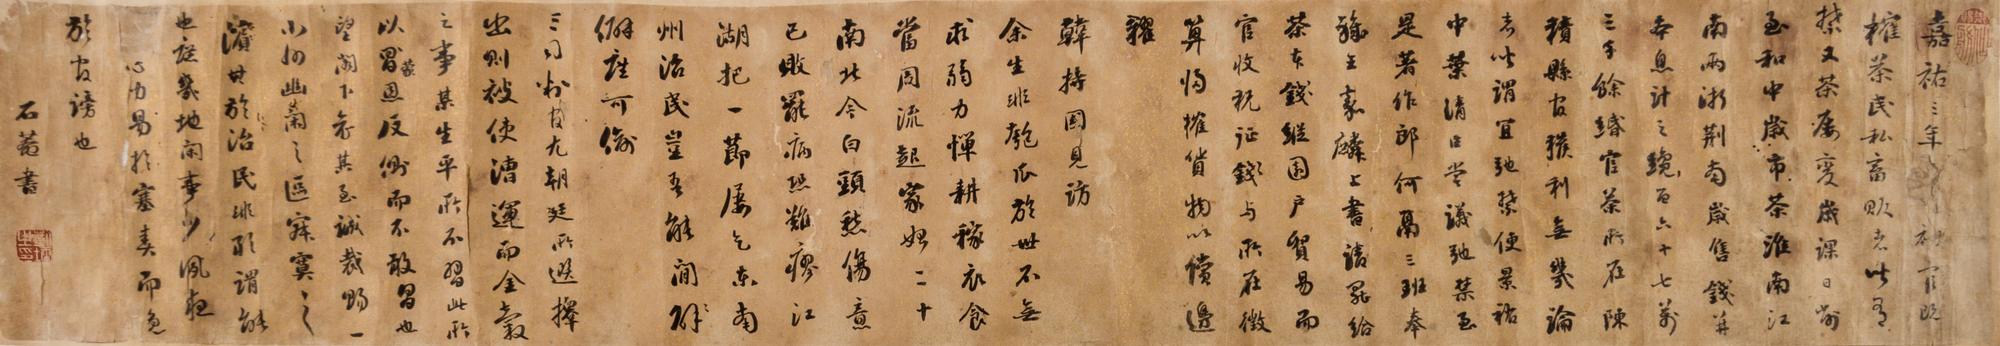 嘉祐三年官既
榷茶民私畜販者皆有
禁又茶屢變歲課日削
至和中歲市茶淮南江
南兩浙荊南歲售錢并
本息計之纔百六十七萬
三千餘緡官茶所在陳
積縣官獲利無幾論
者皆謂宜弛禁便景祐
中葉清臣嘗議弛禁至
是著作郎何鬲三班奉
職王嘉麟上書請罷給
茶本錢縱園戶貿易而
官收稅証錢與所在徵
算歸榷貨物以償邊
糴
韓持國見訪
余生非匏瓜於世不無
求弱力憚耕稼衣食
當周流起家始二十
南北今白頭愁傷意
已敗罷病恐難瘳江
湖把一節屢乞東南
州治民豈吾能閒僻
僻庶可偷
三司判官尤朝廷所選擇
出則被使漕運而金穀
之事某生平所不習此所
以蒙恩反側而不敢冒也
望閣下察其至誠裁賜一
小州幽閒之區寂寞之
濱其於治民非敢謂能
也庶幾地閒事少夙夜
心力易於塞責而免
於官謗也
石菴書